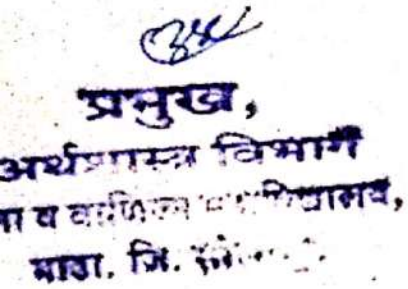 प्रमुख,
अर्थशास्त्र विभाग
व वाणिज्य महाविद्यालय,
माढा. जि.